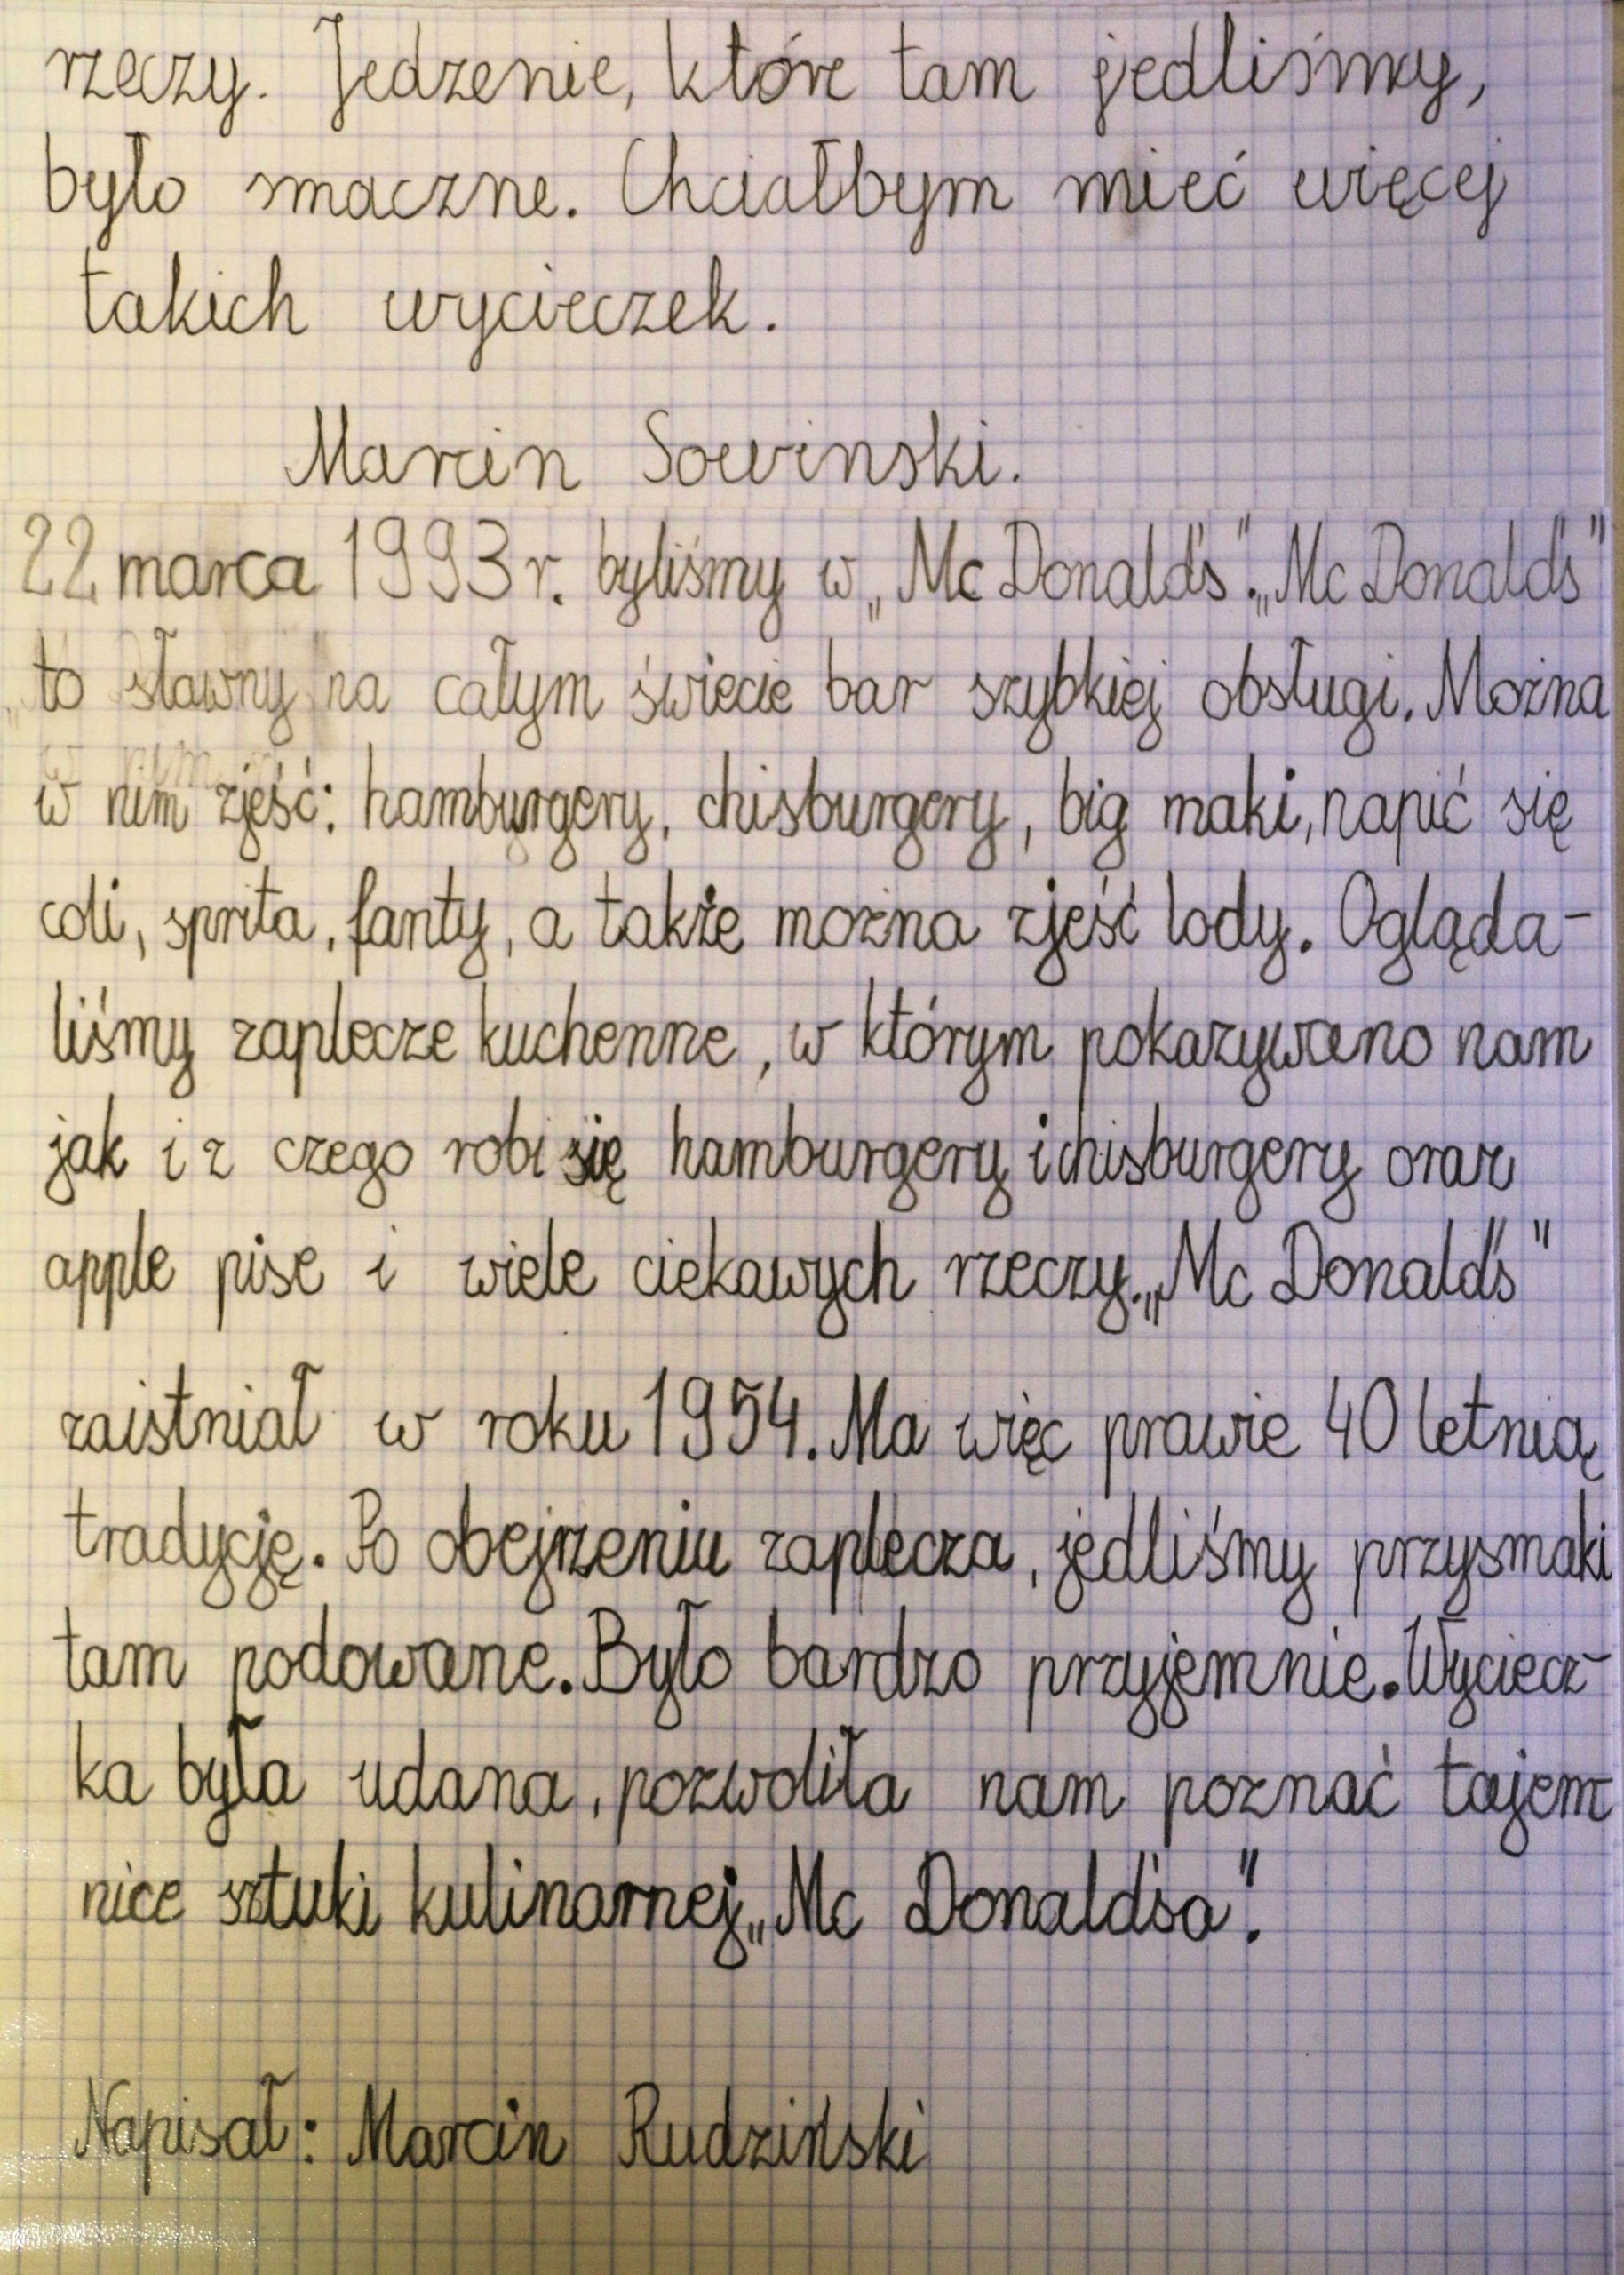 rzeczy. Jedzenie, które tam jedliśmy,
było smaczne. Chciałbym mieć więcej
takich wycieczek.
Marcin Sowinski.
22 marca 1993 r. byliśmy w „Mc Donald's". „Mc Donald's"
to sławny na całym świecie bar szybkiej obsługi. Można
w nim zjeść: hamburgery, chisburgery, big maki, napić się
coli, sprita, fanty, a także można zjeść lody. Ogląda-
liśmy zaplecze kuchenne, w którym pokazywano nam
jak i z czego robi się hamburgery i chisburgery oraz
apple pise i wiele ciekawych rzeczy. „Mc Donald's"
zaistniał w roku 1954. Ma więc prawie 40 letnią
tradycję. Po obejrzeniu zaplecza, jedliśmy przysmaki
tam podowane. Było bardzo przyjemnie. Wyciecz-
ka była udana, pozwoliła nam poznać tajem
nice sztuki kulinarnej „Mc Donald'sa".
Napisał: Marcin Rudziński